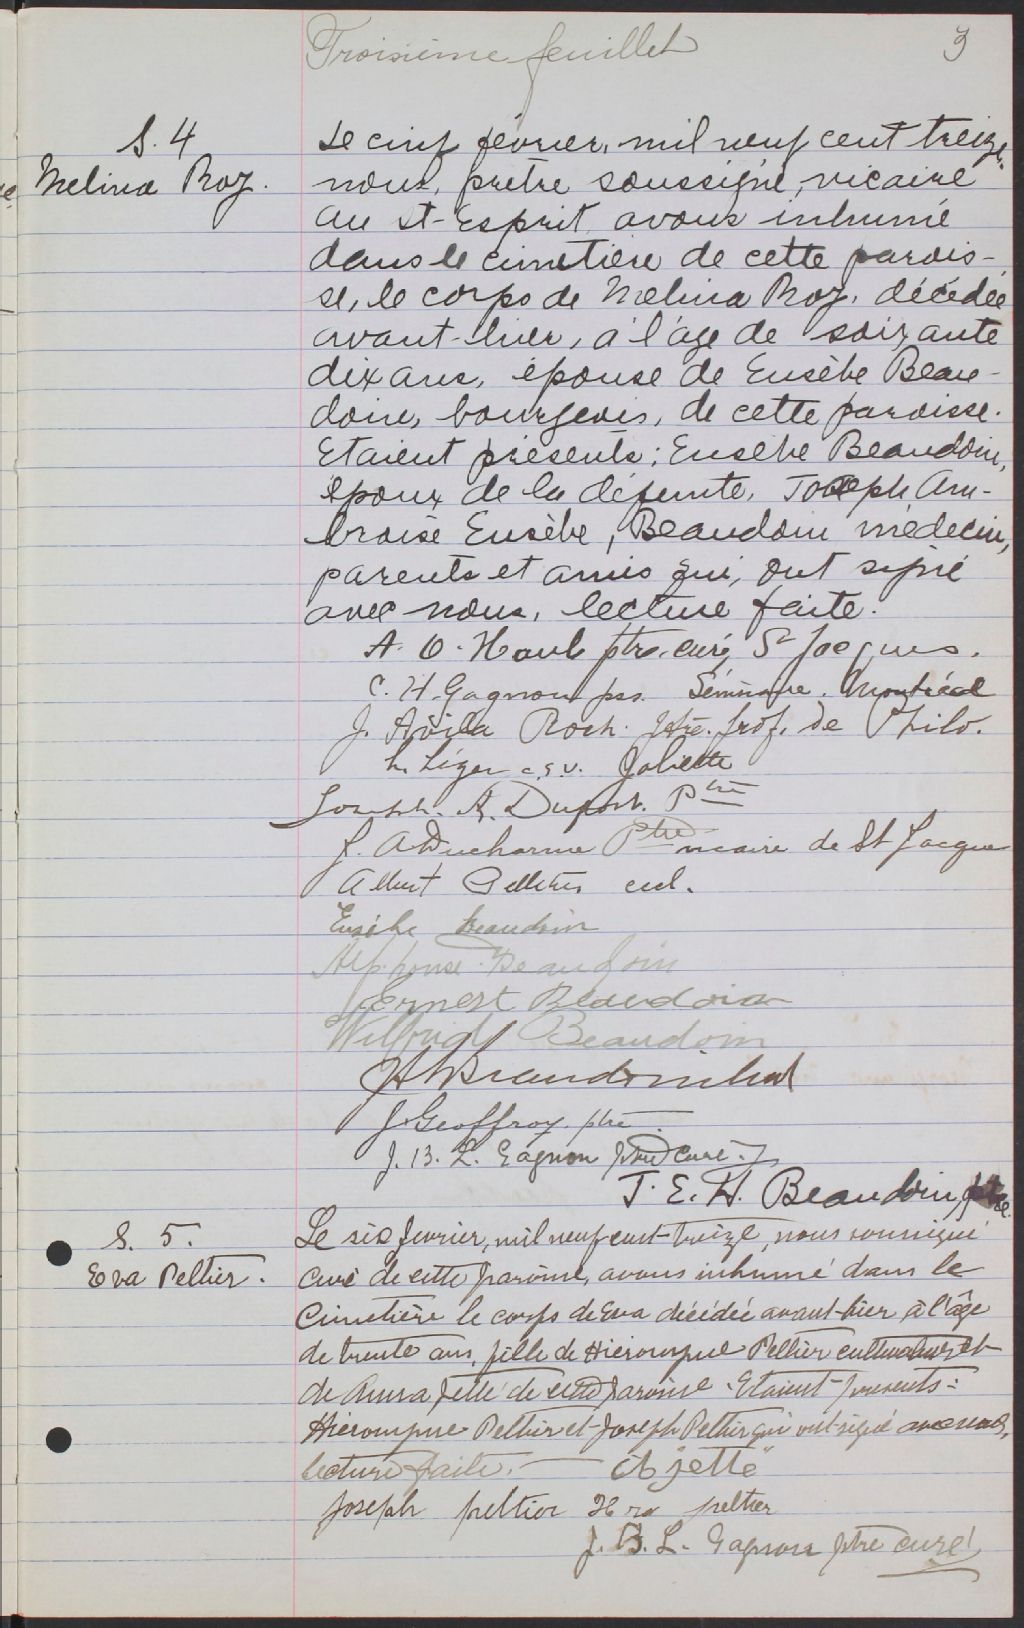 Troisième feuillet 3
S. 4
Melina Roy.
Le cinq février, mil neuf cent treize,
nous, prêtre soussigné, vicaire
au St-Esprit avons inhumé
dans le cimetière de cette parois-
se, le corps de Melina Roy, décédée
avant-hier, à l'âge de soixante
dix ans, épouse de Eusèbe Beau-
doin, bourgeois, de cette paroisse.
Etaient présents: Eusèbe Beaudoin,
époux de la défunte, Joseph Am-
broise Eusèbe, Beaudoin médecin,
parents et amis qui, ont signé
avec nous, lecture faite.
A. O. Houle ptre. curé, St Jacques.
C. H. Gagnon pss. Séminaire. Montréal
J. Avila Roch. ptre. prof. de Philo.
L. Léger c.s.v. Joliette
Joseph. A. Dupont. Ptre
J. A Ducharme Ptre vicaire de St Jacques
Albert Pelletier eccl.
Eusèbe beaudoin
Alphonse Beaudoin
Ernest Beaudoin
Wilfrid Beaudoin
J. Geoffroy. ptre
J. B. L. Gagnon ptre curé.
J. E. H. Beaudoin, ptre.
S. 5.
Eva Peltier.
Le six février, mil neuf cent-treize, nous soussigné
curé de cette paroisse, avons inhumé dans le
Cimetière le corps de Eva décédée avant-hier à l'âge
de trente ans, fille de Hieronyme Peltier cultivateur et
de Anna Jetté de cette paroisse. Etaient-présents:
Hieronyme Peltier et Joseph Peltier qui ont signé avec nous,
lecture faite. jetté"
Joseph peltier peltier
J. B. L. Gagnon ptre curé